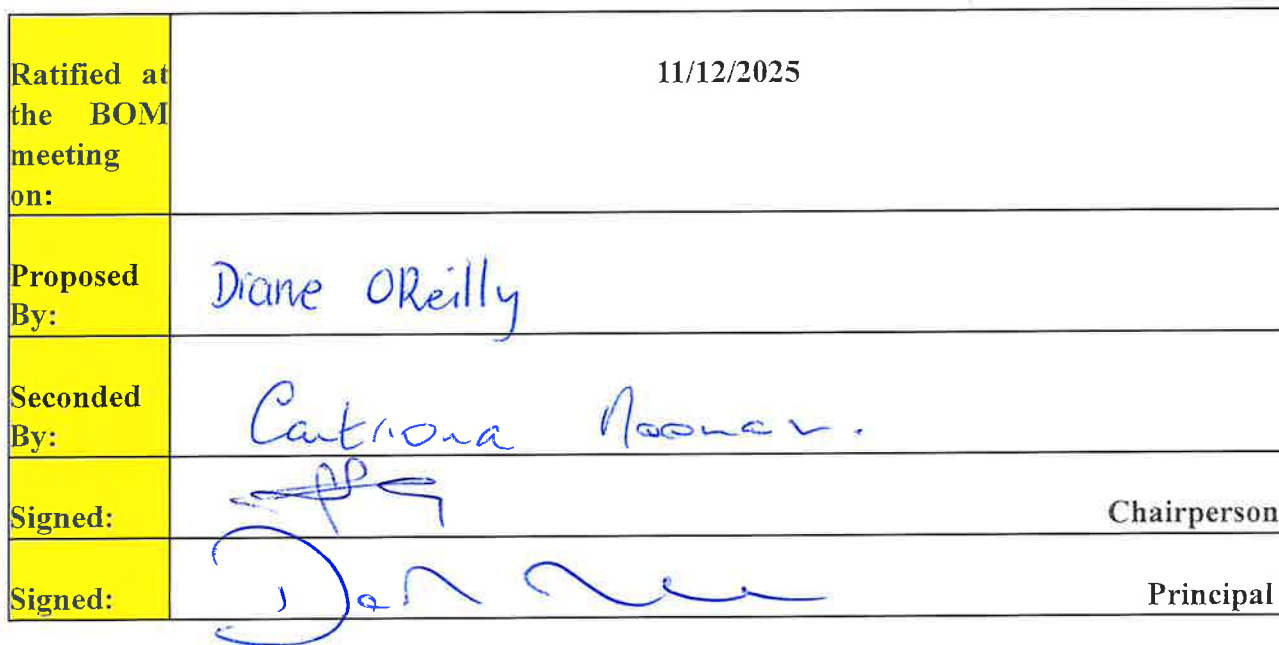 Ratified at
the BOM
meeting
on:
11/12/2025
Proposed
By:
Diane OReilly
Seconded
By:
Caitriona Noonan.
Signed:
Chairperson
Signed:
Principal